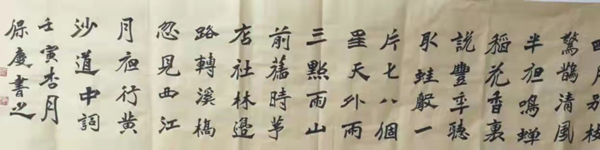 月别枝
驚鵲清風
半夜鳴蟬
稻花香裏
説豐年聽
取蛙聲一
片七八個
星天外兩
三點雨山
前舊時茅
店社林邊
路轉溪橋
忽見西江
月夜行黄
沙道中詞
壬寅杏月
保慶書之